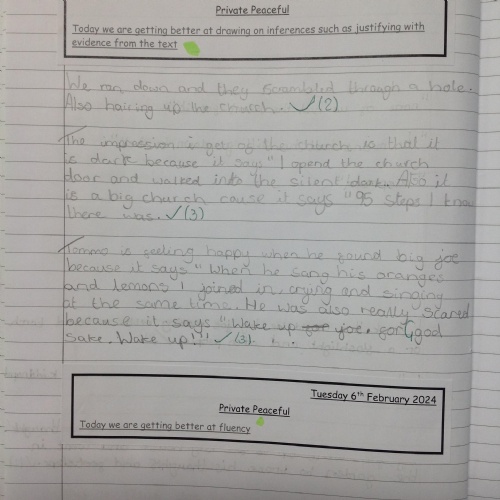 Private Peaceful
Today we are getting better at drawing on inferences such as justifying with
evidence from the text
We ran down and they scrambled through a hole.
Also hairing up the church. ✓(2)
The impression i get of the church is that it
is dark because it says "I opend the church
door and walked into the silent dark. Also it
is a big church cause it says "95 steps I know
there was. ✓(3)
Tommo is feeling happy when he found big joe
because it says "When he sang his oranges
and lemons I joined in, crying and singing
at the same time. He was also really scared
because it says "Wake up joe. for god
sake. Wake up!" ✓(3)
Tuesday 6th February 2024
Private Peaceful
Today we are getting better at fluency